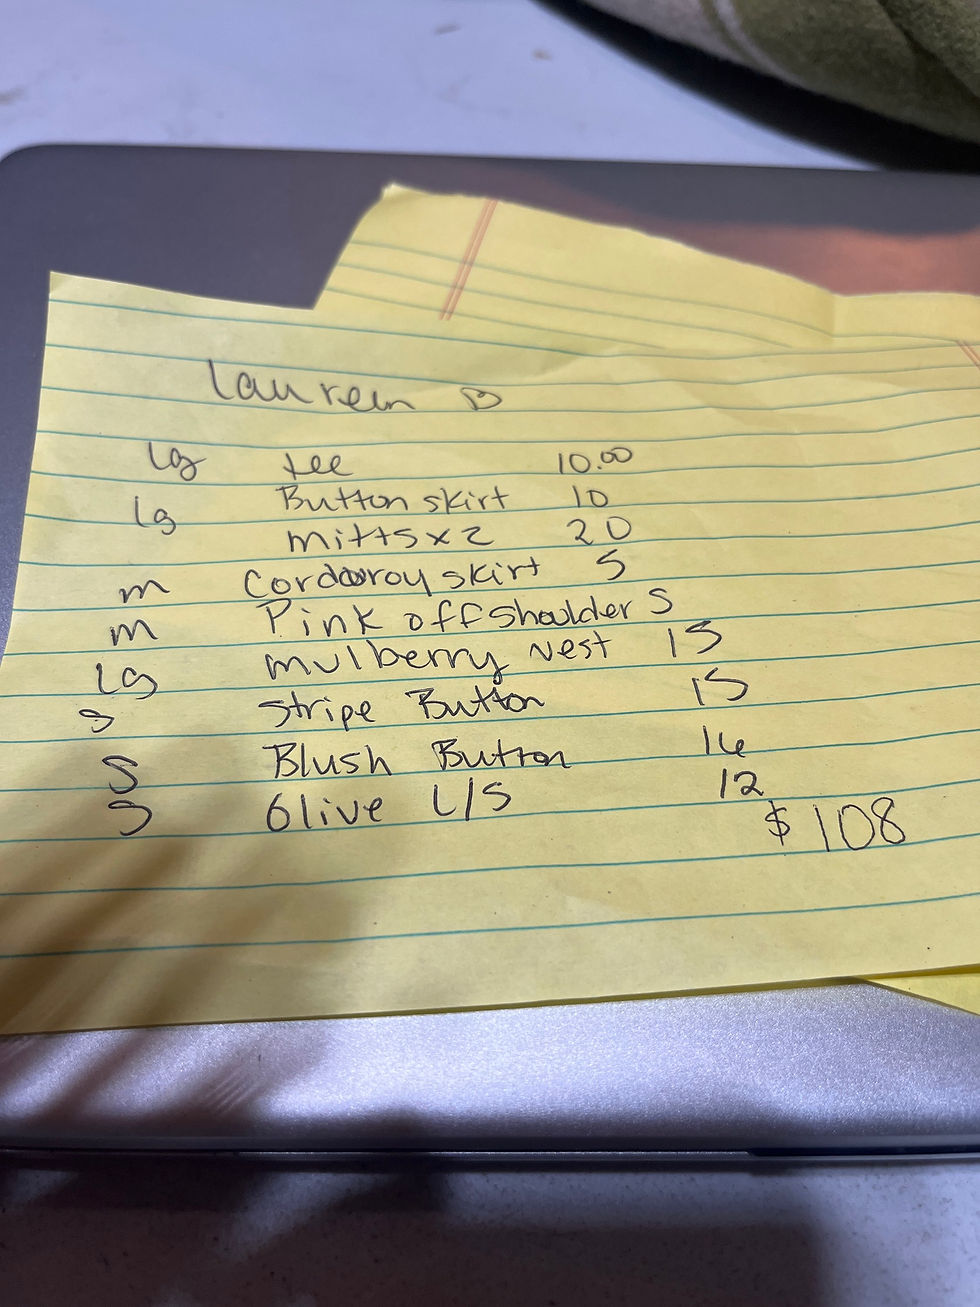 Lauren B
lg tee 10.00
lg Button skirt 10
mitts x 2 20
m Corduroy skirt 5
m Pink off shoulder 5
Lg mulberry vest 15
S Stripe Button 15
S Blush Button 16
S Olive L/S 12
$ 108